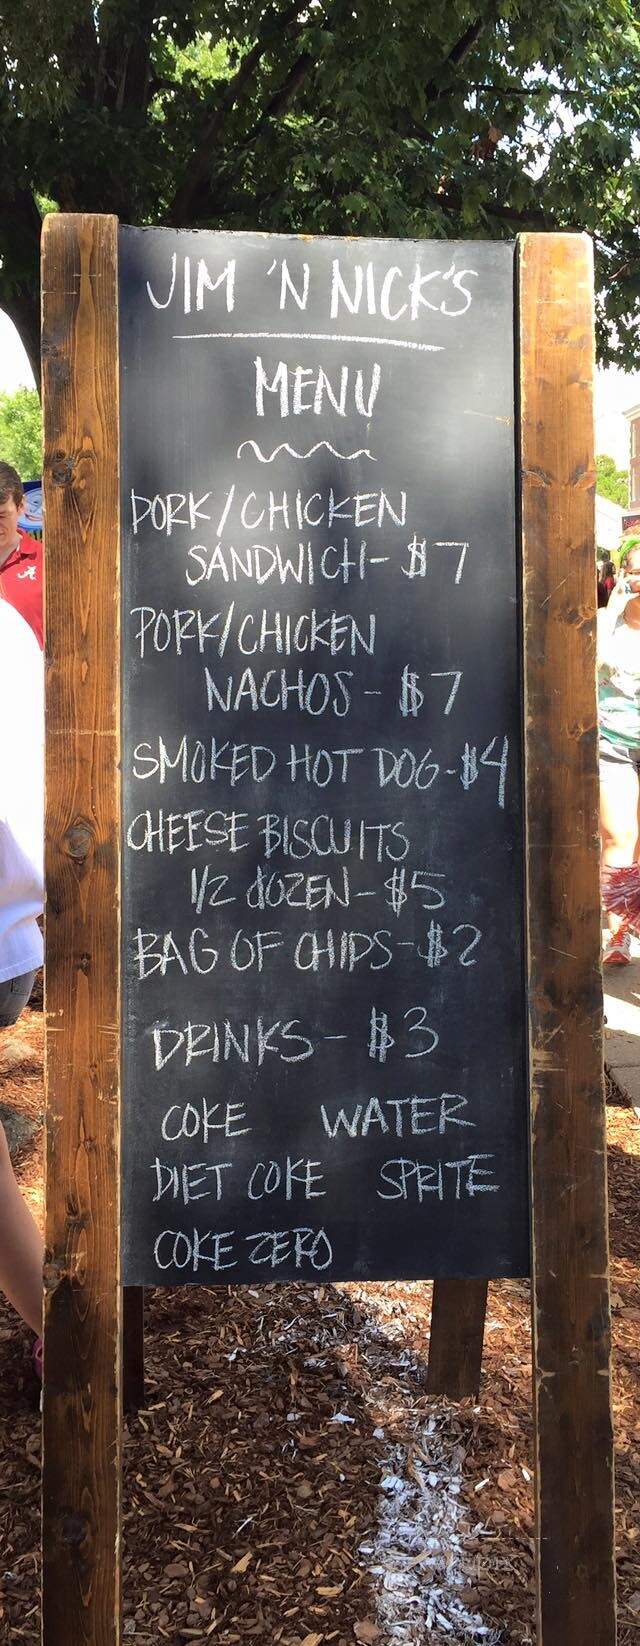 JIM 'N NICK'S
MENU
PORK/CHICKEN
SANDWICH- $7
PORK/CHICKEN
NACHOS - $7
SMOKED HOT DOG-$4
CHEESE BISCUITS
1/2 dOZEN - $5
BAG OF CHIPS-$2
DRINKS - $3
COKE WATER
DIET COKE SPRITE
COKE ZERO